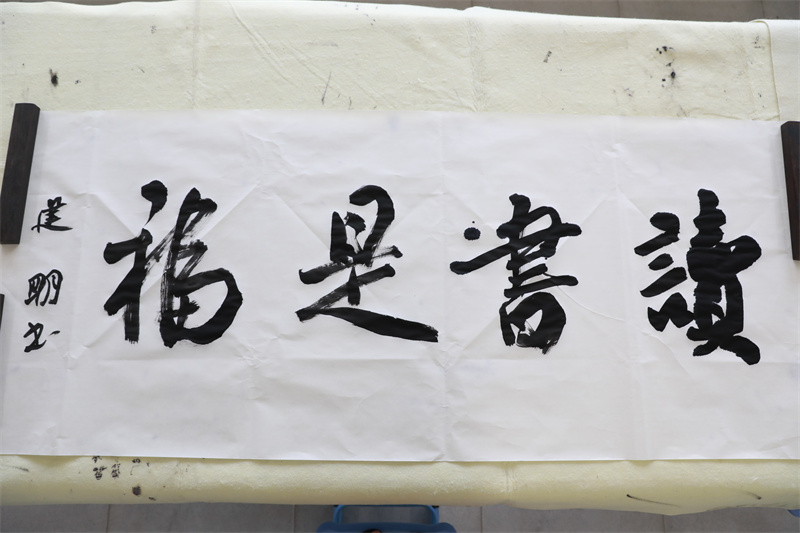 讀書是福
建明书